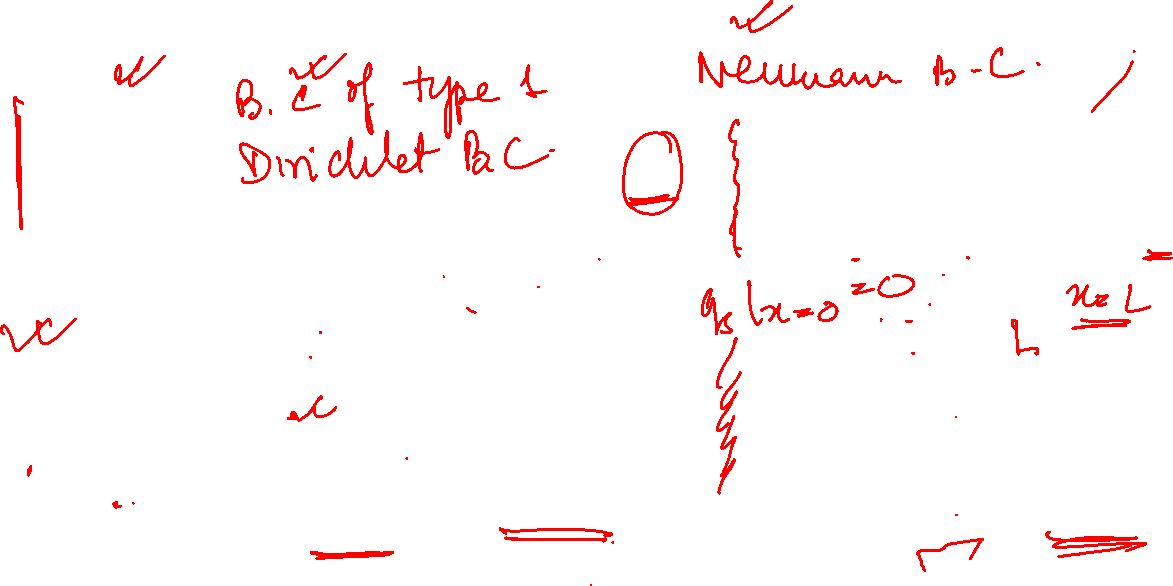 B.C of type 1
Dirichlet B.C.
Neumann B.C.
q_s|x=0 =0
x=L
L